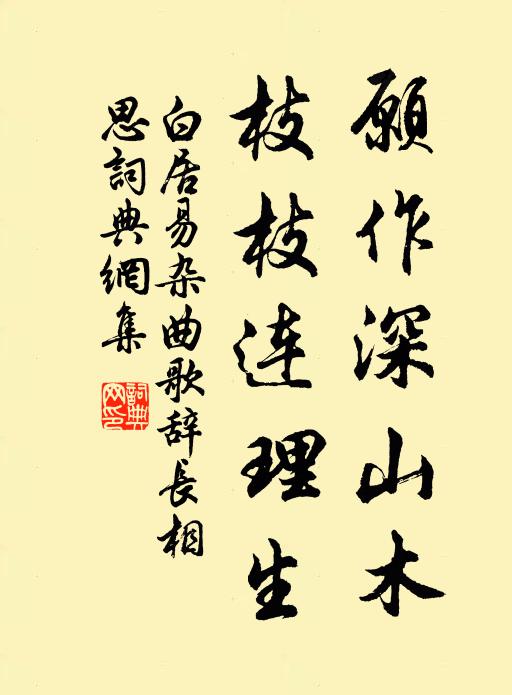 願作深山木
枝枝連理生
白居易杂曲歌辞長相
思詞典網集
詞典
网印